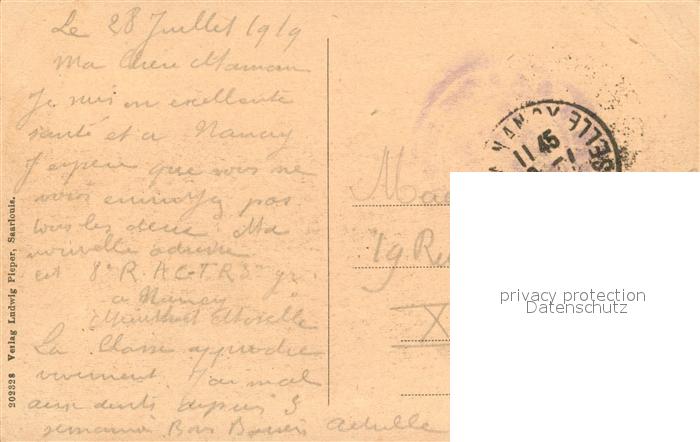 Le 28 Juillet 1919
Ma chere Maman
Je suis en excellente
santé et a Nancy
J'espere que vous ne
vous ennuyez pas
tous les deux Ma
nouvelle adresse
est 8e R. A C-T R 3e
a Nancy
Meurthe et Moselle
La Classe approche
vivement J'ai mal
aux dents depuis 3
semaines Bons Baisers Achille
202328 Verlag Ludwig Pieper, Saarlouis.
NANCY
SELLE
11 45
19 Ru
X
privacy protection
Datenschutz